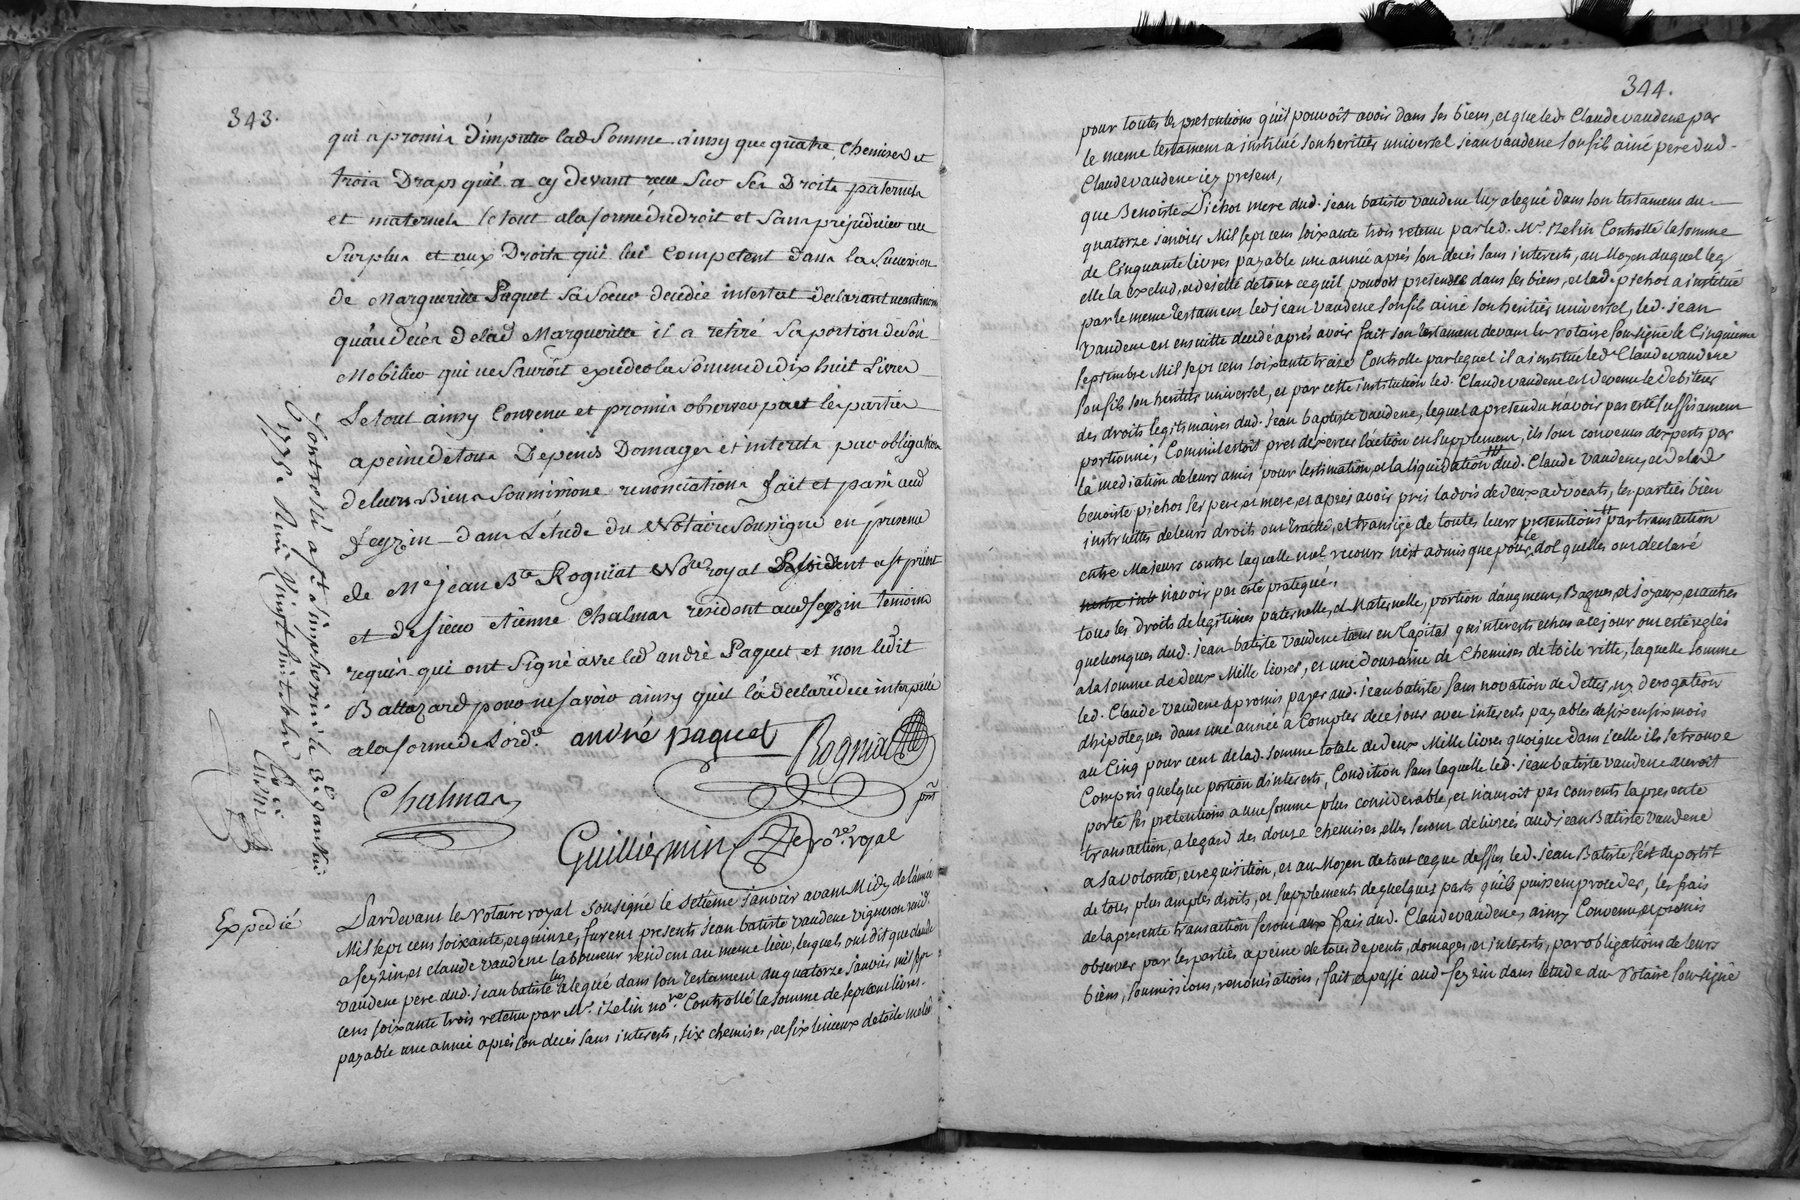 343.
qui a promis d'imputer lad Somme ainsy que quatre chemises et
trois Draps qu'il a cy devant reçu Sur Ses Droits paternels
et maternels le tout a la forme du droit et Sans préjudicier au
Surplus et aux Droits qui lui Competent dans la Succession
de Margueritte Paquet Sa Soeur decedée intestat declarant neantmoins
qu'au déces de lad Margueritte il a retiré Sa portion de Son
Mobilier qui ne Sauroit exceder la Somme de dix huit Livres
Le tout ainsy Convenu et promis observer par les parties
a peine de tous Depends Domages et interets par obligation
de leurs Biens Soumissions renonciations fait et passé aud
feyzin dans L'étude du Notaire Soussigné en presence
de Me jean Bte Rogniat Nore royal Resident a st priest
et de Sieur etienne Chalmas résident aud feyzin temoins
requis qui ont Signé avec led andré Paquet et non ledit
Baltazard pour ne savoir ainsy qu'il l'a declaré de ce interpellé
a la forme de L'ordce. andré paquet Rogniat
pnt
Chalmas
Guilliermin Nore royal
Controllé a st Simphorien le 3e janvier
1775. Reçu
Expedié
Pardevant le Notaire royal Sousigné le setieme janvier avant Midy de l'année
Mil sept cens soixante, et quinze, furent presents jean batiste vaudene vigneron resid.
a feyzin, et claude vaudene laboureur resident au meme lieu, lesquels ont dit que claude
vaudene pere dud. jean batiste luy a legué dans son testament du quatorze janvier mil sept
cens soixante trois retenu par Mr. izelin nore. Controllé la somme de sept cens livres.
payable une année après son deces sans interets, six chemises, et six linceux de toile melée
344.
pour toutes les pretentions qu'il pouvoit avoir dans ses biens, et que led. Claude vaudene par
le meme testament a institué son heritier universel jean vaudene son fils ainé pere dud.
Claude vaudene icy present,
que Benoiste Pichot mere dud. jean batiste vaudene luy a legué dans son testament du
quatorze janvier Mil sept cens soixante trois retenu par led. Mr. izelin Controllé la somme
de Cinquante livres payable une année après son deces sans interets, au Moyen duquel leg
elle l'a exclud, et desisté de tout ce qu'il pouvoit pretendre dans ses biens, et lad. pichot a institué
par le meme testament led. jean vaudene son fils ainé son heritier universel, led. jean
vaudene est ensuitte decedé après avoir fait son testament devant le Notaire sousigné le Cinquieme
septembre Mil sept cens soixante traize Controllé par lequel il a institué led. Claude vaudene
son fils son heritier universel, et par cette institution led. Claude vaudene est devenu le debiteur
des droits legitimaires dud. jean baptiste vaudene, lequel a pretendu n'avoir pas esté suffisament
portionné, Comme il estoit prest d'exercer l'action en supplement, ils sont convenus d'experts par
la mediation de leurs amis pour l'estimation, et la liquidation dud. Claude vaudene, et de lad
benoiste pichot ses pere et mere, et après avoir pris l'advis de deux advocats, les parties bien
instruittes de leurs droits ont traitté, et transigé de toutes leurs pretentions par transaction
entre Majeurs contre laquelle nul recours n'est admis que pour le dol quelles ont declaré
n'avoir pas esté pratiqué,
tous les droits de legitimes paternelle, et Maternelle, portion d'augment, Bagues, et joyaux, et autres
quelconques dud. jean batiste vaudene tant en Capital qu'interets echus a ce jour ont esté reglés
a la somme de deux Mille livres, et une douzaine de Chemises de toile ritte, laquelle somme
led. Claude vaudene a promis payer aud. jean batiste sans novation de dettes, ny derogation
d'hipoteques dans une année a Compter de ce jour avec interets payables de six en six mois
au Cinq pour cent de lad. somme totale de deux Mille livres quoique dans icelle ils se trouve
Compris quelque portion d'interets, Condition sans laquelle led. jean batiste vaudene auroit
porté ses pretentions a une somme plus considerable, et n'auroit pas consenti la presente
transaction, a l'egard des douze chemises, elles seront delivrées aud. jean Batiste vaudene
a sa volonté, et requisition, et au Moyen de tout ce que dessus led. jean Batiste s'est departit
de tous plus amples droits, et supplements de quelques parts qu'ils puissent proceder, les frais
de la presente transaction seront aux frais dud. Claude vaudene, ainsy Convenu, et promis
observer par les parties, a peine de tous depents, domages, et interests, par obligations de leurs
biens, soumissions, renonciations, fait et passé aud. feyzin dans l'etude du Notaire sousigné